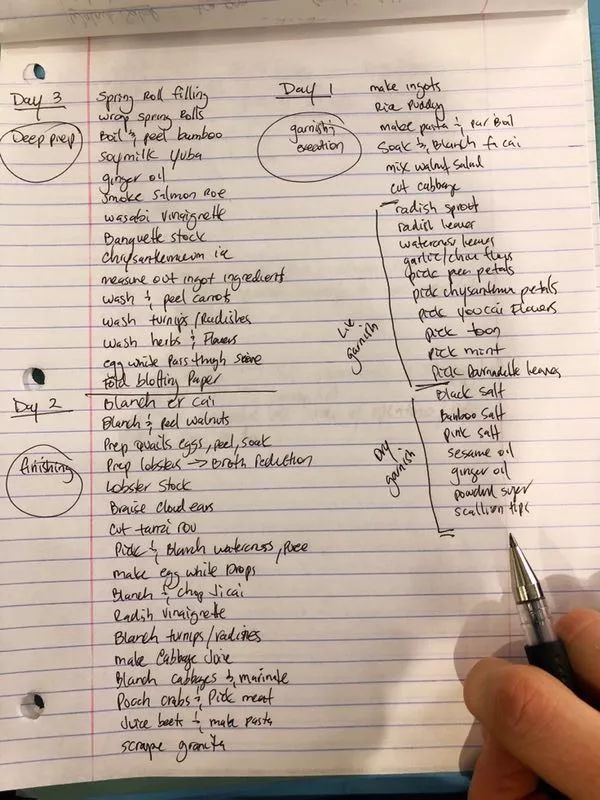 Day 3
Deep prep
Spring Roll filling
wrap spring Rolls
Boil & peel bamboo
Soymilk Yuba
ginger oil
smoke Salmon Roe
wasabi vinaigrette
Banquette stock
Chrysanthemum ice
measure out ingot ingredient
wash & peel carrots
wash turnips/Radishes
wash herbs & Flowers
egg white Pass through sieve
fold blotting Paper
Day 2
finishing
Blanch er cai
Blanch & peel walnuts
Prep quails eggs, peel, soak
Prep lobsters → Broth Reduction
Lobster Stock
Braise Cloud ears
Cut tanzi rou
Pick & Blanch watercress, Puree
make egg white Drops
Blanch & chop Ji cai
Radish vinaigrette
Blanch turnips/radishes
make Cabbage Juice
Blanch cabbages & marinate
Poach crabs & Pick meat
Juice beets & make pasta
scrape granita
Day 1
garnish & execution
make ingots
Rice Pudding
make pasta & Par Boil
Soak & Blanch fa cai
mix walnut salad
cut cabbage
Live garnish
radish sprout
radish leaves
watercress leaves
garlic/chive flwrs
pick pea petals
pick chrysanthemum petals
pick you cai Flowers
pick toon
pick mint
pick Burnadette leaves
Dry garnish
Black salt
Bamboo salt
pink salt
sesame oil
ginger oil
powdered sugar
scallion tips